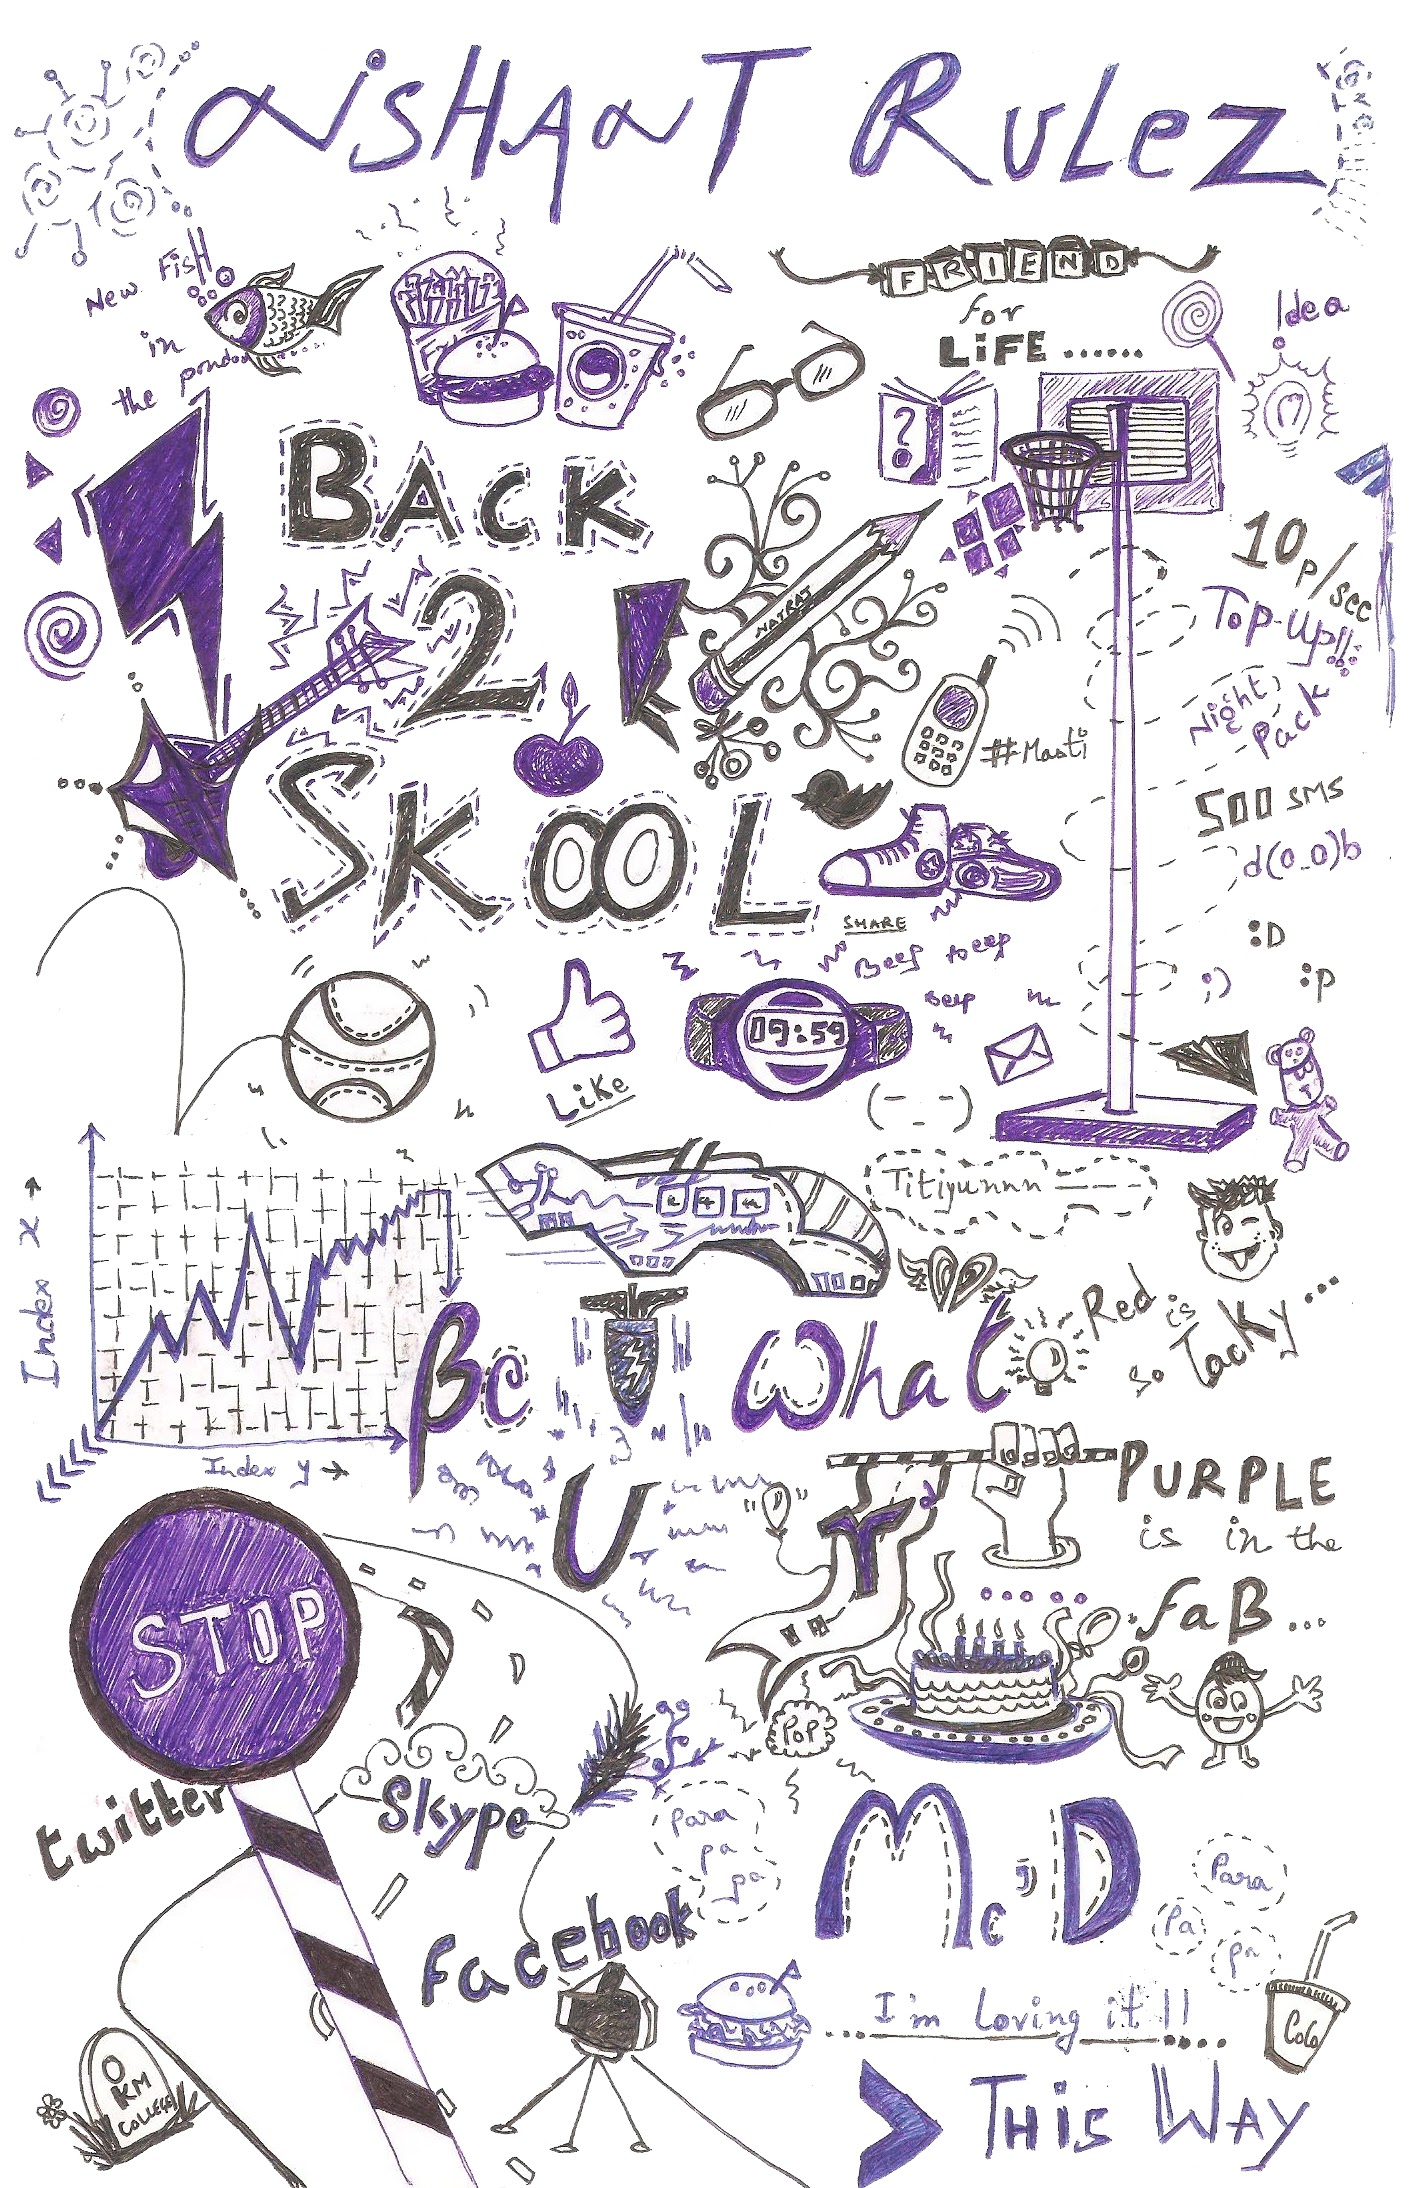 NiSHANT RuLeZ
New FisH
in
the pondoo
FRIEND
for
LiFE ......
Idea
?
BACK
2
SKOOL
NATRAJ
10p/sec
Top-Up!!
Night
Pack
#Masti
500 SMS
d(0_0)b
:D
;)
:p
SHARE
Beep beep
Beep
09:59
LiKe
(- -)
Titiyunnn
Index x →
Index y →
Be
What
U
Red is
so Tacky ...
PURPLE
is in the
faB...
STOP
POP
twitter
Skype
facebook
Para
pa
pa
Mc'D
Para
Pa
pa
I'm Loving it !!
CoCo
0
KM
COLLEGE
THiS WAY